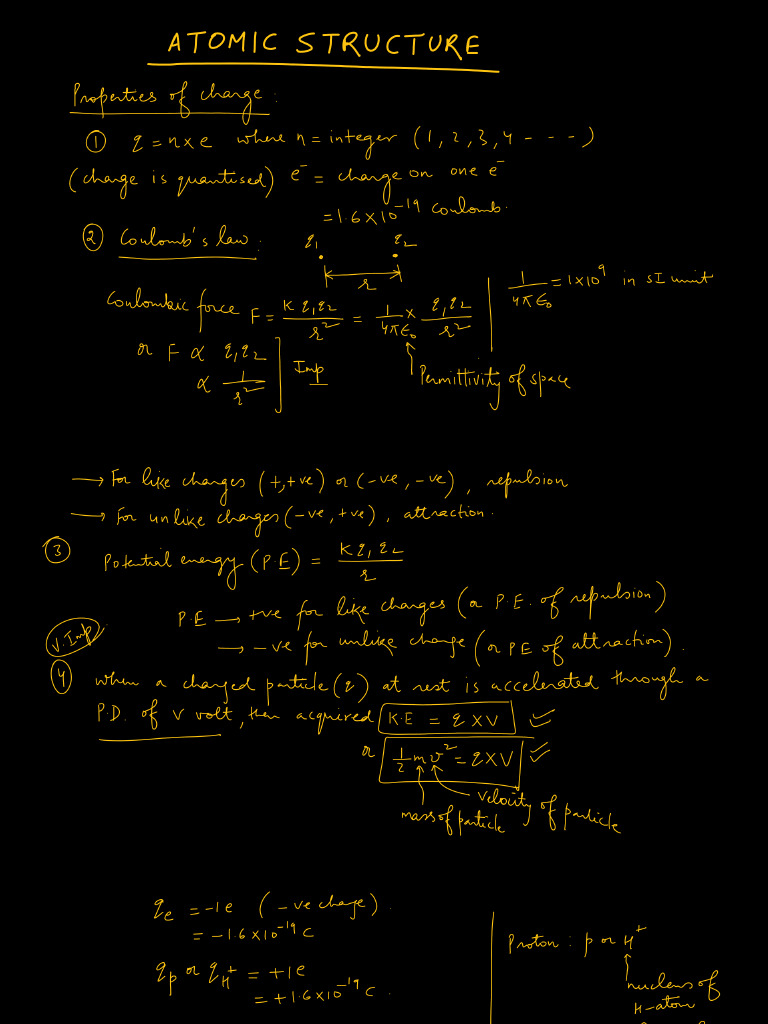 ATOMIC STRUCTURE
Properties of charge :
① q = n×e where n = integer (1, 2, 3, 4 - - - -)
(charge is quantised) e⁻ = charge on one e⁻
= 1.6×10⁻¹⁹ Coulomb.
② Coulomb's law :
q₁ q₂
r
Coulombic force F = K q₁q₂/r² = 1/4πε₀ × q₁q₂/r²
1/4πε₀ = 1×10⁹ in SI unit
or F ∝ q₁q₂
∝ 1/r²
Imp
Permittivity of space
→ For like charges (+,+ve) or (-ve, -ve), repulsion
→ For unlike charges (-ve, +ve), attraction.
③ Potential energy (P.E) = K q₁ q₂/r
P.E → +ve for like charges (or P.E. of repulsion)
→ -ve for unlike charge (or PE of attraction).
V. Imp
④ when a charged particle (q) at rest is accelerated through a
P.D. of V volt, then acquired K.E = q×V ✓
or 1/2 mv² = q×V ✓
mass of particle
velocity of particle
qₑ = -1e (-ve charge).
= -1.6×10⁻¹⁹ C
qₚ or q_H⁺ = +1e
= +1.6×10⁻¹⁹ C.
Proton : p or H⁺
nucleus of
H-atom